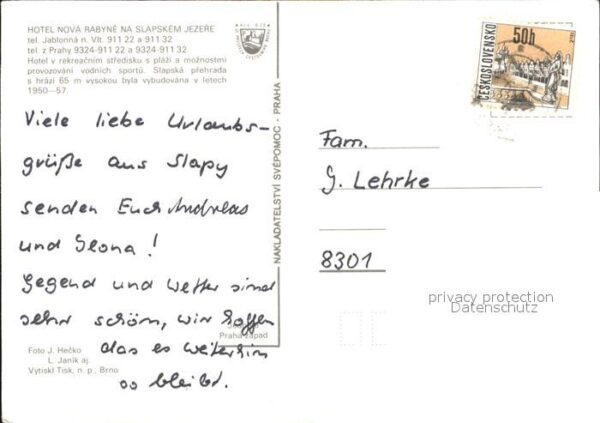 HOTEL NOVÁ RABYNĚ NA SLAPSKÉM JEZEŘE
tel. Jablonná n. Vlt. 911 22 a 911 32
tel. z Prahy 9324-911 22 a 9324-911 32
Hotel v rekreačním středisku s pláží a možností
provozování vodních sportů. Slapská přehrada
s hrází 65 m vysokou byla vybudována v letech
1950—57.
Viele liebe Urlaubs-
grüße aus Slapy
senden Euch Andreas
und Ilona!
Gegend und Wetter sind
sehr schön, wir hoffen
das es weiterhin
so bleibt.
Praha-západ
Foto J. Hečko
L. Janík aj.
Vytiskl Tisk, n. p., Brno
NAKLADATELSTVÍ SVÉPOMOC - PRAHA
ČESKOSLOVENSKO
50h
Fam.
G. Lehrke
8301
privacy protection
Datenschutz